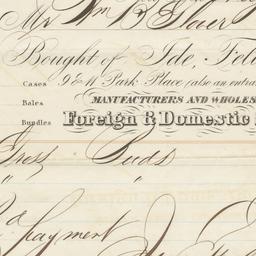 Mr Wm B
Bought of Ide, Fel
Cases 9 & 11 Park Place (also an entra
Bales MANUFACTURERS AND WHOLES
Bundles Foreign & Domestic
Gross Buds
" "
payment